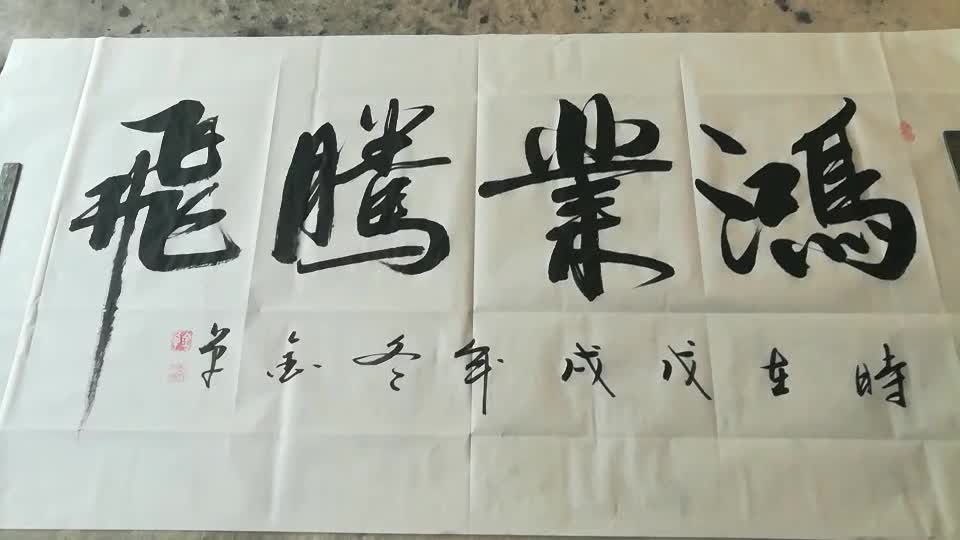 鴻業騰飛
時在戊戌年冬金草